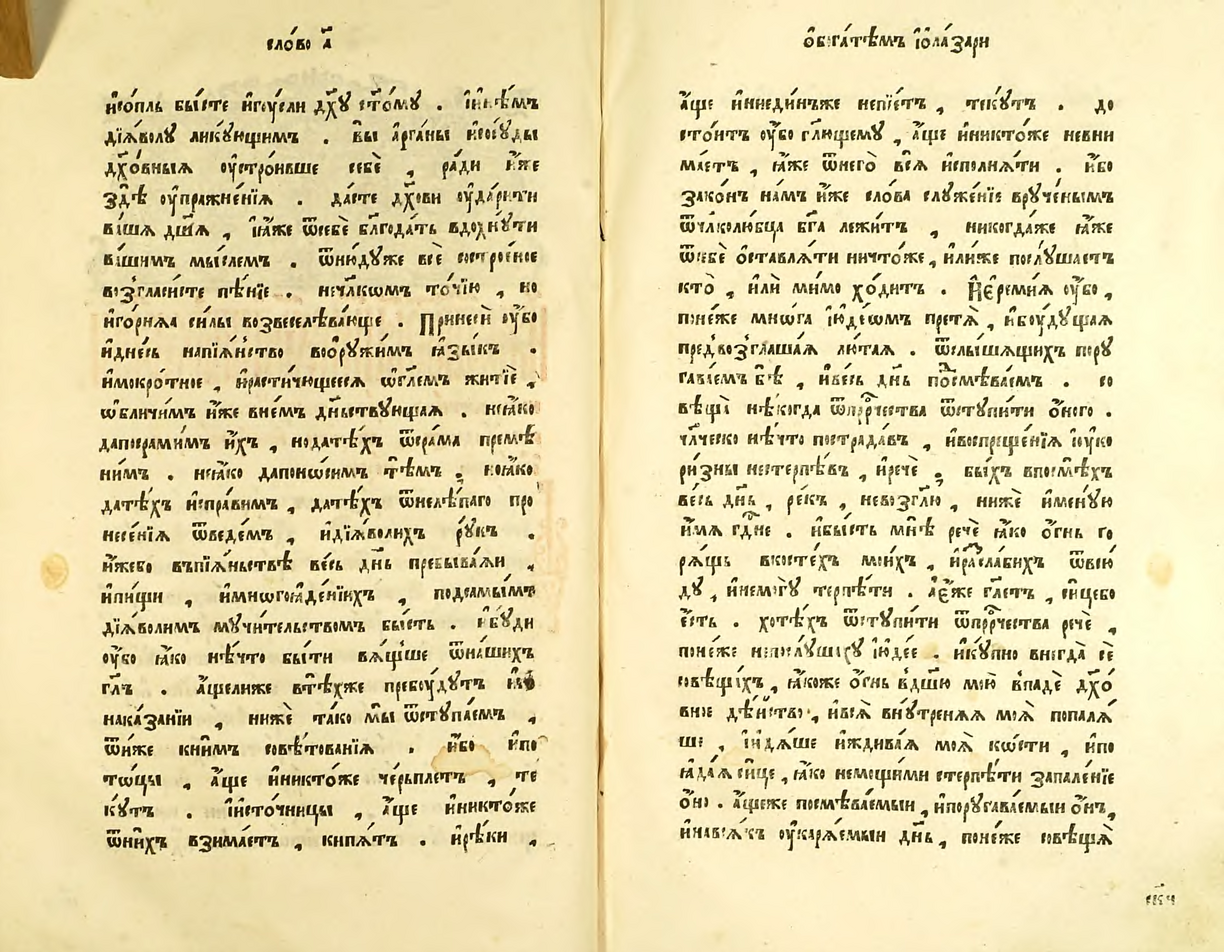 сло́во а҃
и҆сопль бы́сте и҆гоусли дх҃ꙋ ст҃о́мꙋ .
дїѧ́волꙋ ликꙋющимъ . вы̀ арга́ны и҆сосꙋды
дх҃о́вныѧ оу҆стро́ивше себѐ , ра́ди и҆́же
здѣ̀ оу҆пражне́нїѧ . да́сте дх҃ови оу҆да́рити
ва́шѧ дш҃ѧ , і҆ꙗ҆́же ѿсебѐ бл҃года́ть вдохнꙋти
ва́шимъ мы́слемъ . ѿню́дꙋже всѐ состро́еное
возгласи́сте пѣ́нїе . нечл҃кѡмъ то́чїю , но
и҆го́рнѧѧ си́лы возвеселѣва́юще . Принесѝ оу҆бо
и҆дне́сь напїѧ́нство воѡрꙋжи́мъ ꙗ҆зы́къ .
и҆мокро́тное , и҆растича́ющеесѧ ѡ҆гле́мъ житїѐ ,
ѡ҆бличи́мъ и҆́же вне́мъ дѣ́йствꙋющаѧ . неꙗ҆́ко
дапосрами́мъ и҆̀хъ , нодатѣ́хъ ѿсра́ма премѣ
ни́мъ . неꙗ҆́ко дапонѡси́мъ тѣ́мъ , ноꙗ҆́ко
датѣ́хъ и҆спра́вимъ , датѣ́хъ ѿнелѣ́паго про
несе́нїѧ ѿведе́мъ , и҆дїѧ́волихъ рꙋ́къ .
и҆́жебо въпїѧ́ньствѣ ве́сь дн҃ь пребыва́ѧи ,
и҆пи́щи , и҆мно́гоꙗ҆де́нїихъ , подсамы́мъ
дїѧ́волимъ мꙋчи́тельствомъ бы́сть . и҆бꙋди
оу҆́бо ꙗ҆́ко нѣ́что бы́ти вѧ́щьше ѿна́шихъ
гл҃ъ . а҆́щелиже втѣ́хже пребꙋдꙋтъ
наказа́нїи , нижѐ та́ко мы̀ ѿстꙋпа́емъ ,
ѿи́же кни́мъ совѣ́тованїѧ . и҆́бо и҆по
то́цы , а҆́ще и҆никто́же че́рьплетъ , те
кꙋ́тъ . і҆исто́чницы , а҆́ще и҆никто́же
ѿни́хъ взима́етъ , кипѧ́тъ . и҆рѣ́ки ,
о҆бога́тѣмъ і҆ѡла́зари
а҆́ще и҆ниеди́нъже непїе́тъ , текꙋ́тъ . до
сто́итъ оу҆́бо гл҃ющемꙋ , а҆́ще и҆никто́же невни
ма́етъ , ꙗ҆́же ѿнего̀ всѧ̀ и҆сполнѧ́ти . и҆́бо
зако́нъ на́мъ и҆́же сло́ва слꙋже́нїе врꙋче́нымъ
ѿчл҃колю́бца бг҃а лежи́тъ , никогда́же ꙗ҆́же
ѿсебѐ о҆ставлѧ́ти ничто́же , и҆ли́же послꙋ́шаетъ
кто̀ , и҆лѝ ми́мо хо́дитъ . І҆еремі́ѧ оу҆́бо ,
поне́же мно́га і҆ꙋде́ѡмъ претѧ̀ , и҆бꙋдꙋщаѧ
предвозглаша́ѧ лю́таѧ . ѿслы́шѧщихъ порꙋ
га́емъ бѣ̀ , и҆ве́сь дн҃ь посмѣва́емъ . со
вѣща̀ нѣ́когда ѿпрⷪ҇рчества ѿстꙋпи́ти о҆́ного .
чл҃ческо нѣ́что пострада́въ , и҆воспреще́нїѧ і҆ꙋко
ри́зны нестерпѣ́въ , и҆речѐ , бы́хъ впосмѣ́хъ
ве́сь дн҃ь , ре́къ , невозгл҃ю , нижѐ и҆менꙋю
и҆́мѧ гдⷭ҇не . и҆бы́сть мнѣ̀ речѐ ꙗ҆́ко о҆́гнь го
рѧ́щь вкосте́хъ мои́хъ , и҆расла́бихъ ѿвсю
дꙋ , и҆немогꙋ терпѣ́ти . а҆є҆́же гл҃етъ , си́цебо
є҆́сть . хотѣ́хъ ѿстꙋпи́ти ѿпрⷪ҇рчества речѐ ,
поне́же непослꙋ́шахꙋ і҆ꙋде́е . и҆кꙋпно внегда̀ сѐ
совѣща́хъ , ꙗ҆́коже о҆́гнь вдш҃ю мою̀ впадѐ дх҃о́
вное дѣ́йство , и҆всѧ̀ внꙋ́тренѧѧ моѧ̀ попалѧ́
ше , і҆и҆дѧ́ше и҆ждива́ѧ моѧ̀ ко́сти , и҆по
ꙗ҆да́ѧ си́це , ꙗ҆́ко немо́щими стерпѣ́ти запале́нїе
о҆но̀ . а҆́щеже посмѣва́емыи , и҆порꙋга́емыи о҆́нъ ,
оу҆карѧ́емыи дн҃ь , поне́же совѣща̀